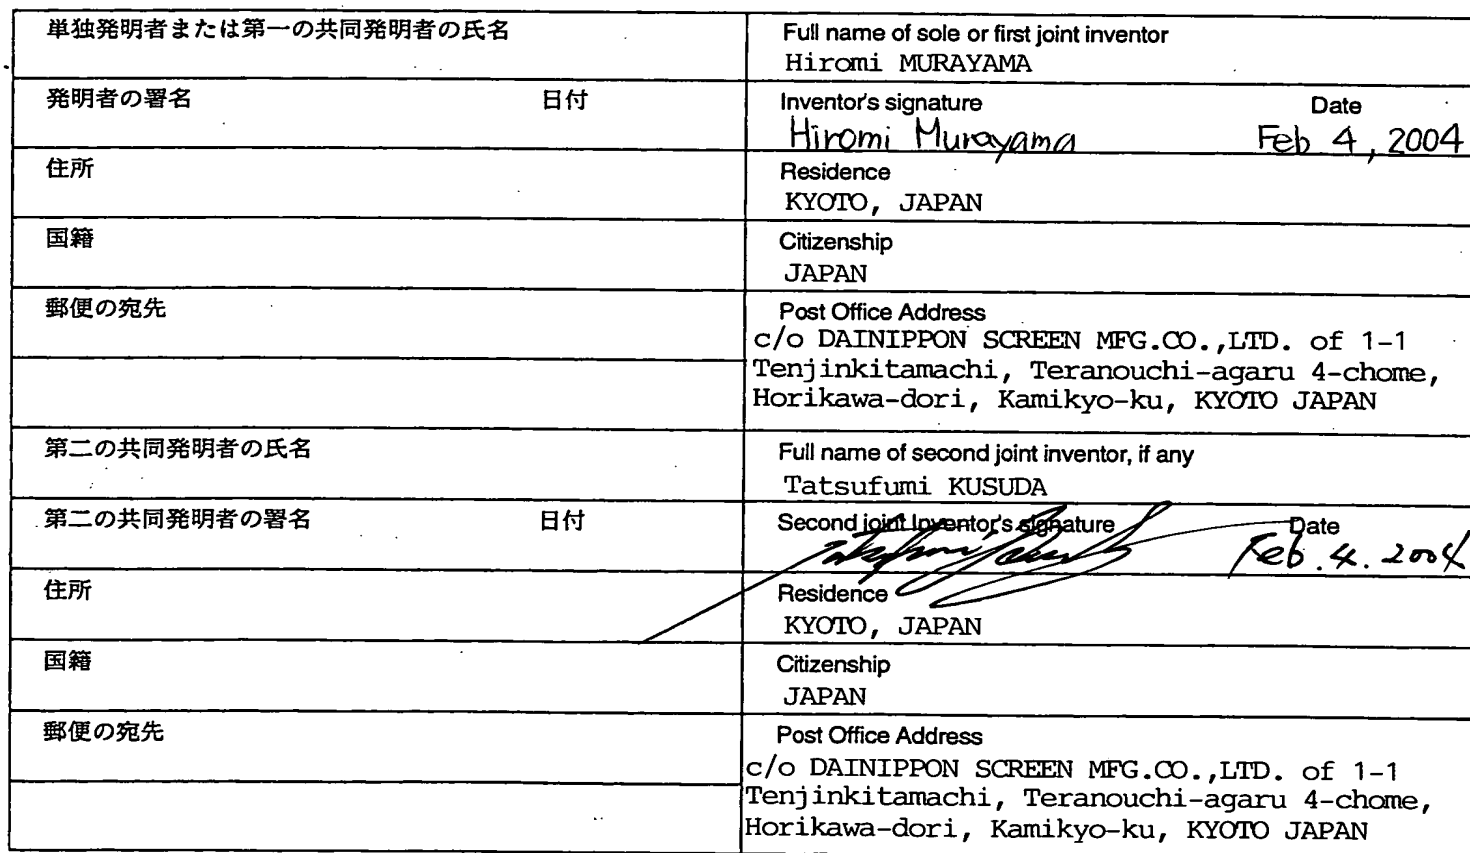 単独発明者または第一の共同発明者の氏名
Full name of sole or first joint inventor
Hiromi MURAYAMA
発明者の署名 日付
Inventor's signature Date
Hiromi Murayama Feb 4, 2004
住所
Residence
KYOTO, JAPAN
国籍
Citizenship
JAPAN
郵便の宛先
Post Office Address
c/o DAINIPPON SCREEN MFG.CO.,LTD. of 1-1
Tenjinkitamachi, Teranouchi-agaru 4-chome,
Horikawa-dori, Kamikyo-ku, KYOTO JAPAN
第二の共同発明者の氏名
Full name of second joint inventor, if any
Tatsufumi KUSUDA
第二の共同発明者の署名 日付
Second joint Inventor's signature Date
Feb. 4. 2004
住所
Residence
KYOTO, JAPAN
国籍
Citizenship
JAPAN
郵便の宛先
Post Office Address
c/o DAINIPPON SCREEN MFG.CO.,LTD. of 1-1
Tenjinkitamachi, Teranouchi-agaru 4-chome,
Horikawa-dori, Kamikyo-ku, KYOTO JAPAN